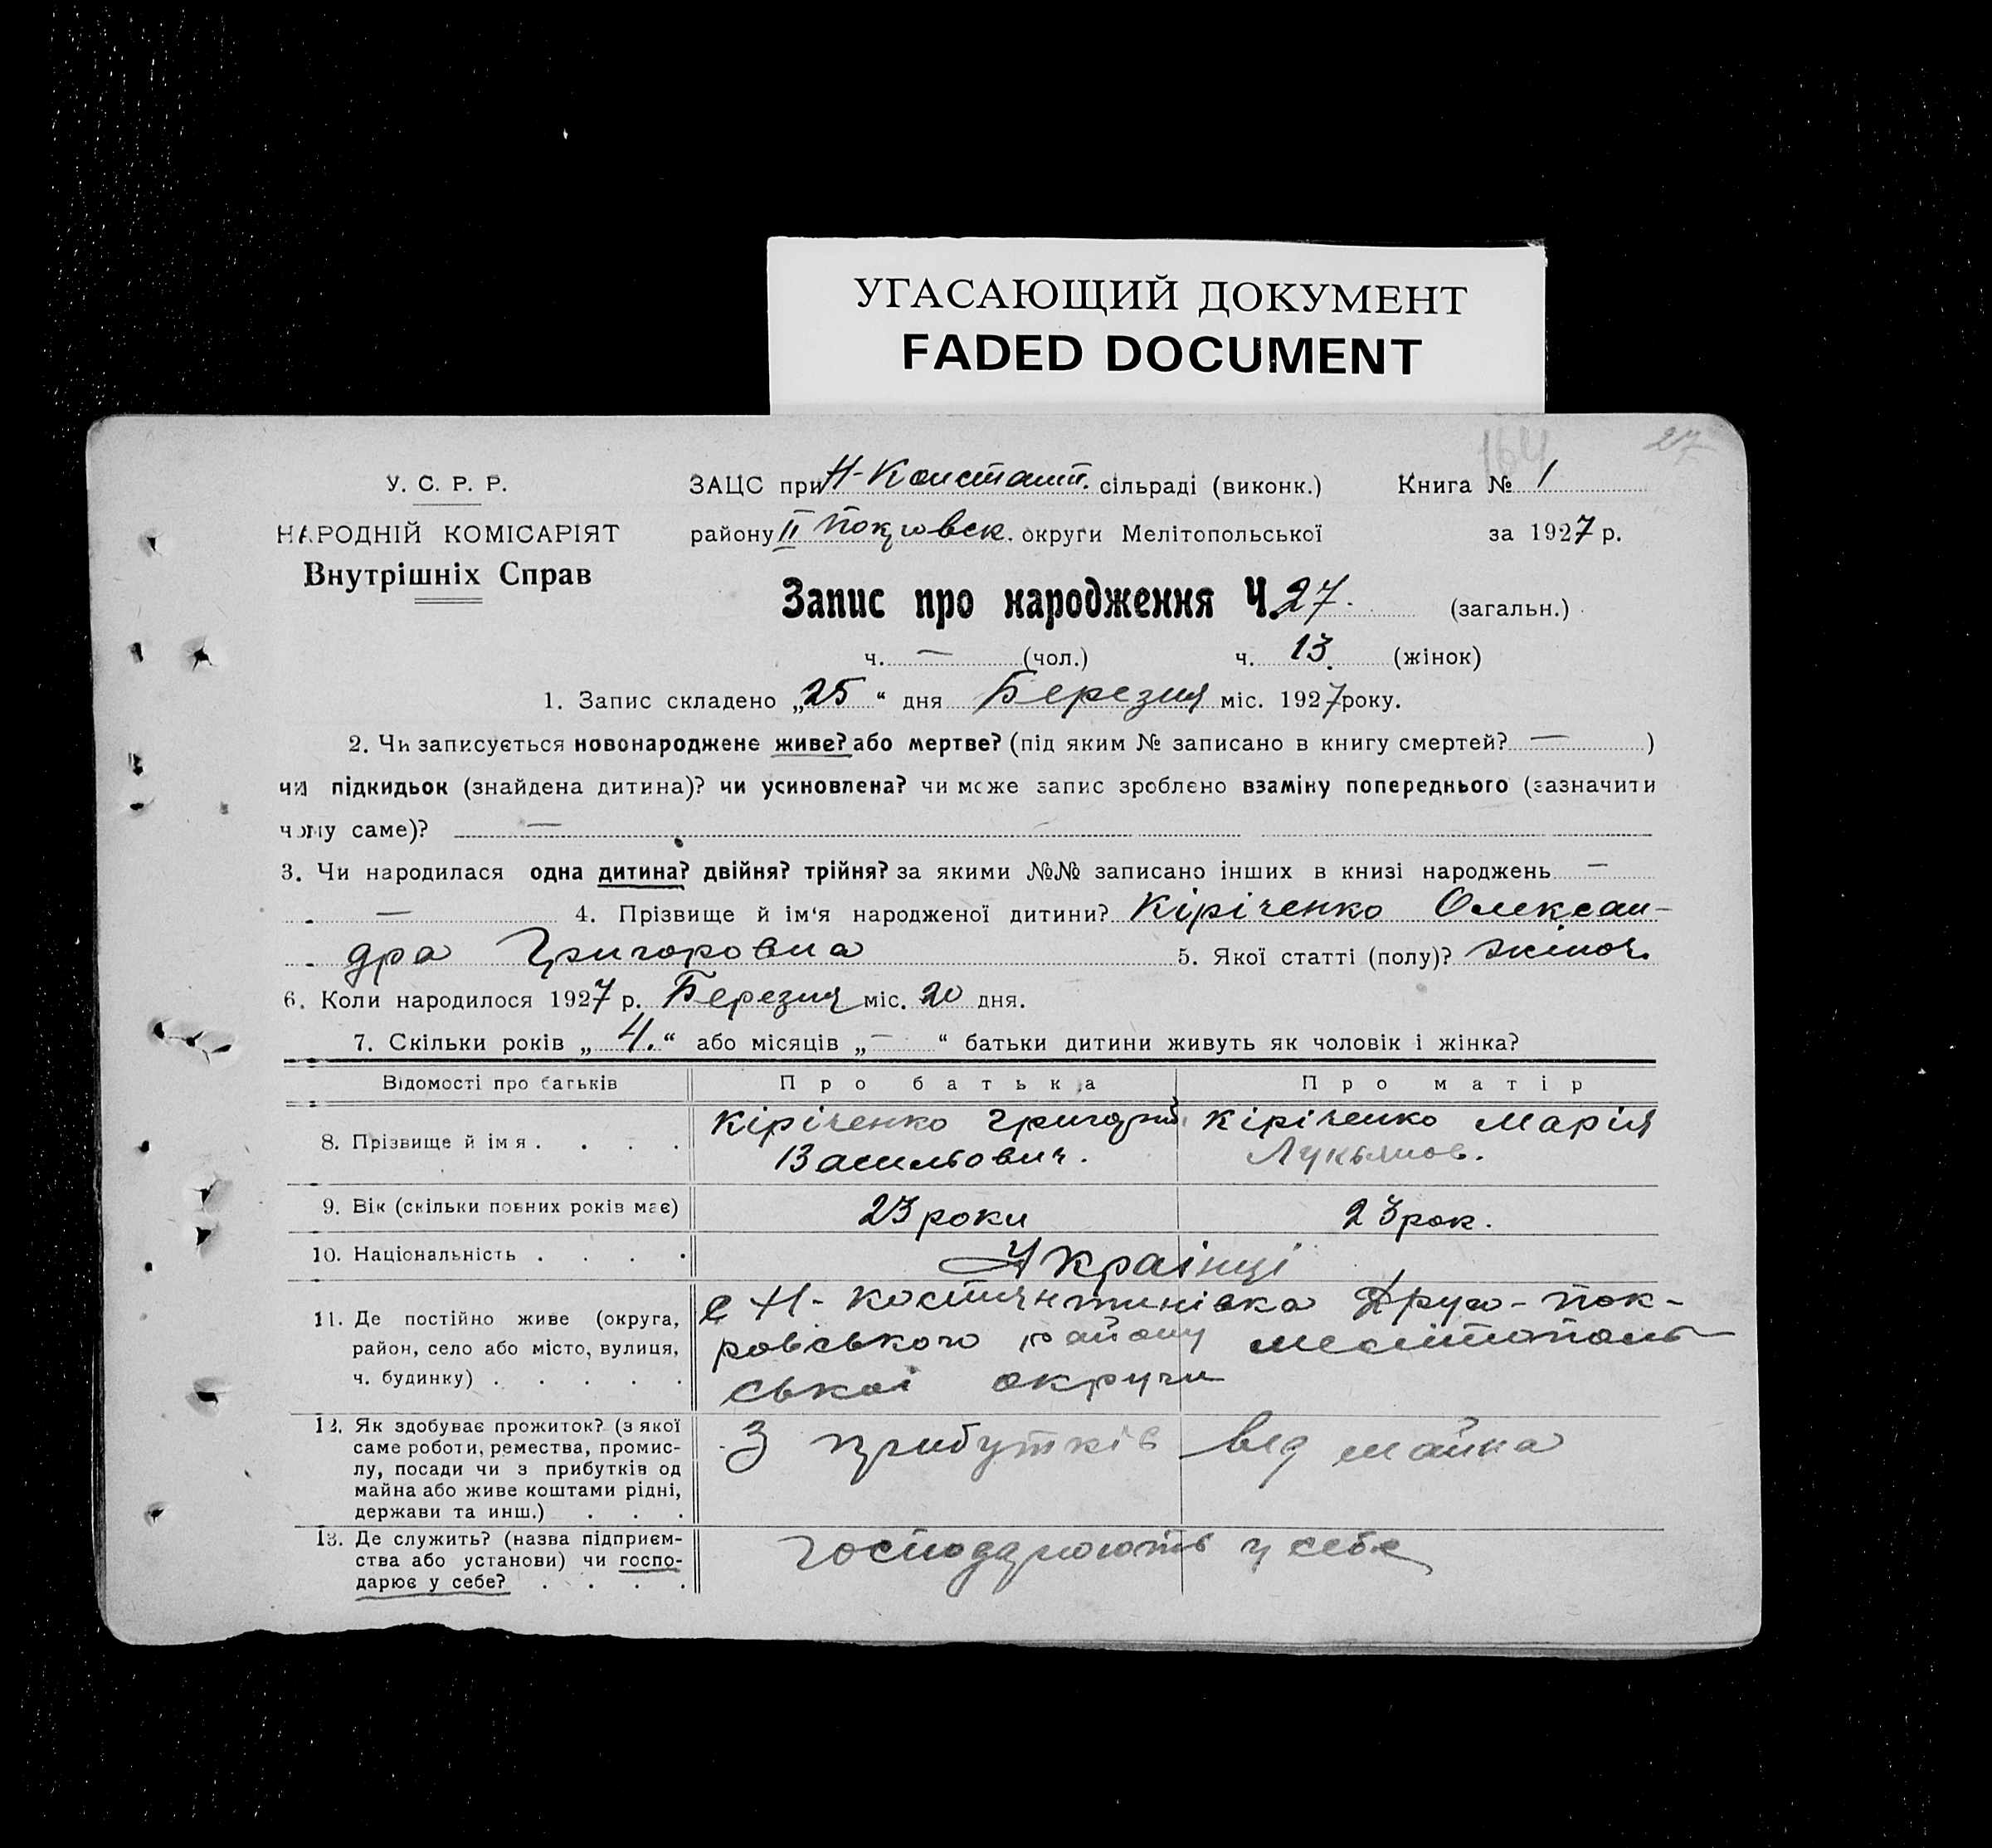 УГАСАЮЩИЙ ДОКУМЕНТ
FADED DOCUMENT
164 27
У. С. Р. Р.
НАРОДНІЙ КОМІСАРІЯТ
Внутрішніх Справ
ЗАЦС при Н-Констант. сільраді (виконк.) Книга № 1
району ІІ Покровск. округи Мелітопольської за 1927 р.
Запис про народження Ч. 27. (загальн.)
ч. — (чол.) ч. 13. (жінок)
1. Запис складено „25“ дня Березня міс. 1927 року.
2. Чи записується новонароджене живе? або мертве? (під яким № записано в книгу смертей? — )
чи підкидьок (знайдена дитина)? чи усиновлена? чи може запис зроблено взаміну попереднього (зазначити
чому саме)? —
3. Чи народилася одна дитина? двійня? трійня? за якими №№ записано інших в книзі народжень —
— 4. Прізвище й ім'я народженої дитини? Кіріченко Олексан-
дра Григоровна 5. Якої статті (полу)? жіноч.
6. Коли народилося 1927 р. Березня міс. 20 дня.
7. Скільки років „4.“ або місяців „—“ батьки дитини живуть як чоловік і жінка?
Відомості про батьків Про батька Про матір
8. Прізвище й імя . . . . Кіріченко Григорій Кіріченко Марія
Васильович. Лукьянов.
9. Вік (скільки повних років має) 23 роки 23 рок.
10. Національність . . . . Українці
11. Де постійно живе (округа,
район, село або місто, вулиця,
ч. будинку) . . . . .
с Н-Костянтинівка Друго-Пок-
ровського району Мелітополь-
ської округи
12. Як здобуває прожиток? (з якої
саме роботи, ремества, промис-
лу, посади чи з прибутків од
майна або живе коштами рідні,
держави та инш.) . . .
З прибутків від майна
13. Де служить? (назва підприєм-
ства або установи) чи госпо-
дарює у себе? . . . .
господарюють у себе